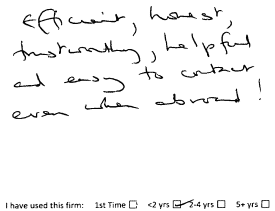 Efficient, honest,
trustworthy, helpful
and easy to contact
even when abroad!
I have used this firm: 1st Time ☐ <2 yrs ☑ 2-4 yrs ☐ 5+ yrs ☐